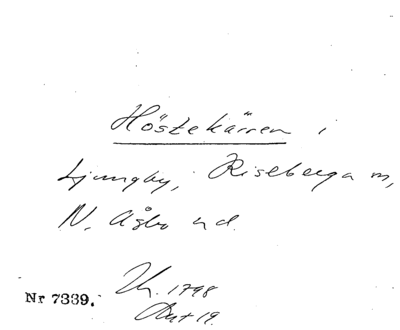 Höstekärren i
Ljungby, Riseberga m,
N. Åsbo hd.
Nr 7339. 1798